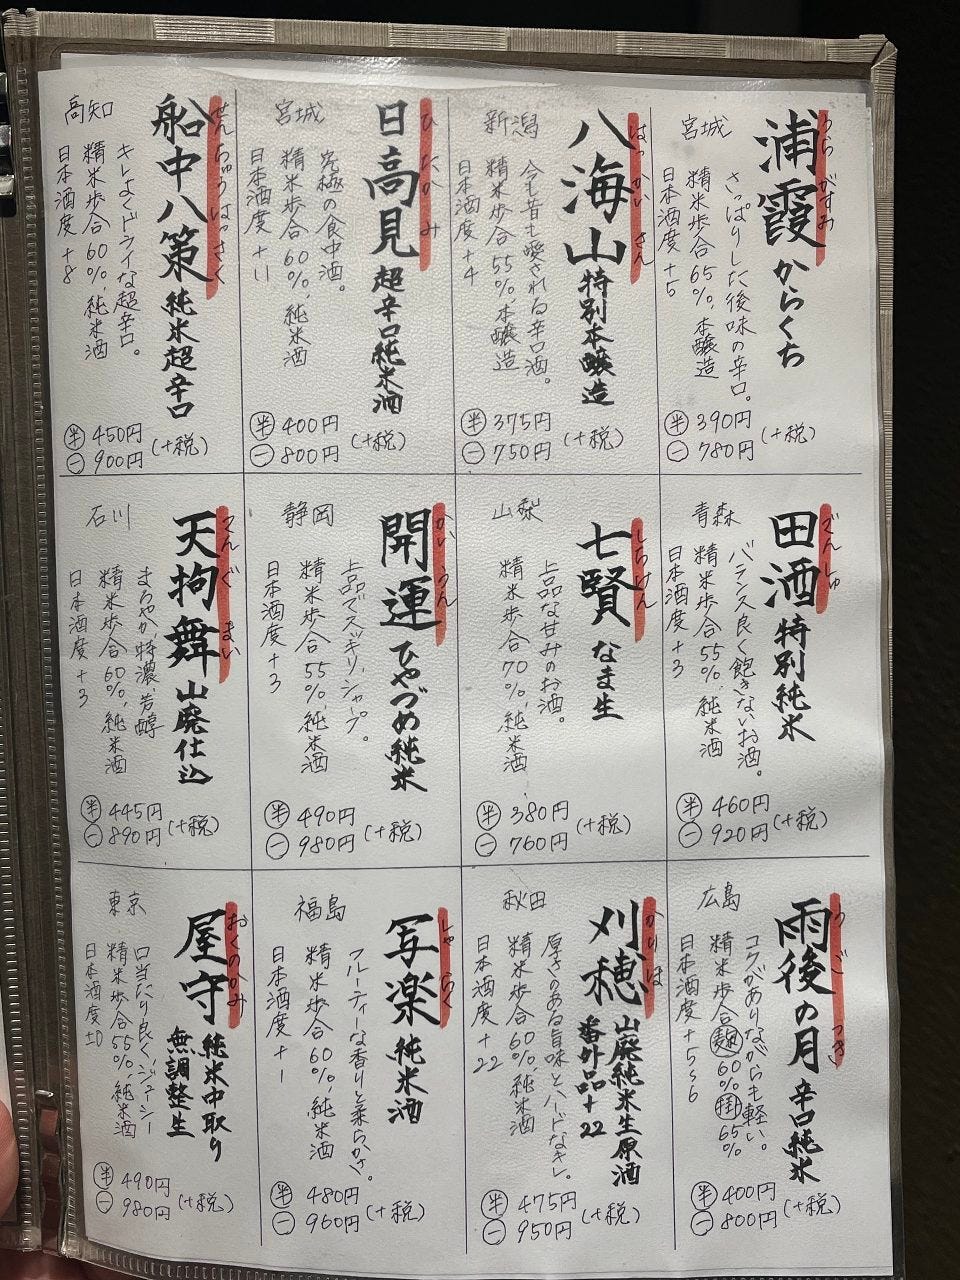 宮城
浦霞 からくち
うらがすみ
さっぱりした後味の辛口。
精米歩合65%、本醸造
日本酒度+5
半 390円
一 780円
(+税)
新潟
八海山 特別本醸造
はっかいさん
今も昔も愛される辛口酒。
精米歩合55%、本醸造
日本酒度+4
半 375円
一 750円
(+税)
宮城
日高見 超辛口純米酒
ひたかみ
究極の食中酒。
精米歩合60%、純米酒
日本酒度+11
半 400円
一 800円
(+税)
高知
船中八策 純米超辛口
せんちゅうはっさく
キレよくドライな超辛口。
精米歩合60%、純米酒
日本酒度+8
半 450円
一 900円
(+税)
青森
田酒 特別純米
でんしゅ
バランス良く飽きないお酒。
精米歩合55%、純米酒
日本酒度+3
半 460円
一 920円
(+税)
山梨
七賢 なま生
しちけん
上品な甘みのお酒。
精米歩合70%、純米酒
半 380円
一 760円
(+税)
静岡
開運 ひやづめ純米
かいうん
上品でスッキリ、シャープ。
精米歩合55%、純米酒
日本酒度+3
半 490円
一 980円
(+税)
石川
天狗舞 山廃仕込
てんぐまい
まろやか、特濃、芳醇
精米歩合60%、純米酒
日本酒度+3
半 445円
一 890円
(+税)
広島
雨後の月 辛口純米
うごのつき
コクがありながらも軽い。
精米歩合 麹60% 掛65%
日本酒度+5~6
半 400円
一 800円
(+税)
秋田
刈穂 山廃純米生原酒
番外品+22
かりほ
厚さのある旨味とハードなキレ。
精米歩合60%、純米酒
日本酒度+22
半 475円
一 950円
(+税)
福島
写楽 純米酒
しゃらく
フルーティーな香りと柔らかさ。
精米歩合60%、純米酒
日本酒度+1
半 480円
一 960円
(+税)
東京
屋守 純米中取り
無調整生
おくのかみ
口当たり良く、ジューシー
精米歩合55%、純米酒
日本酒度±0
半 490円
一 980円
(+税)